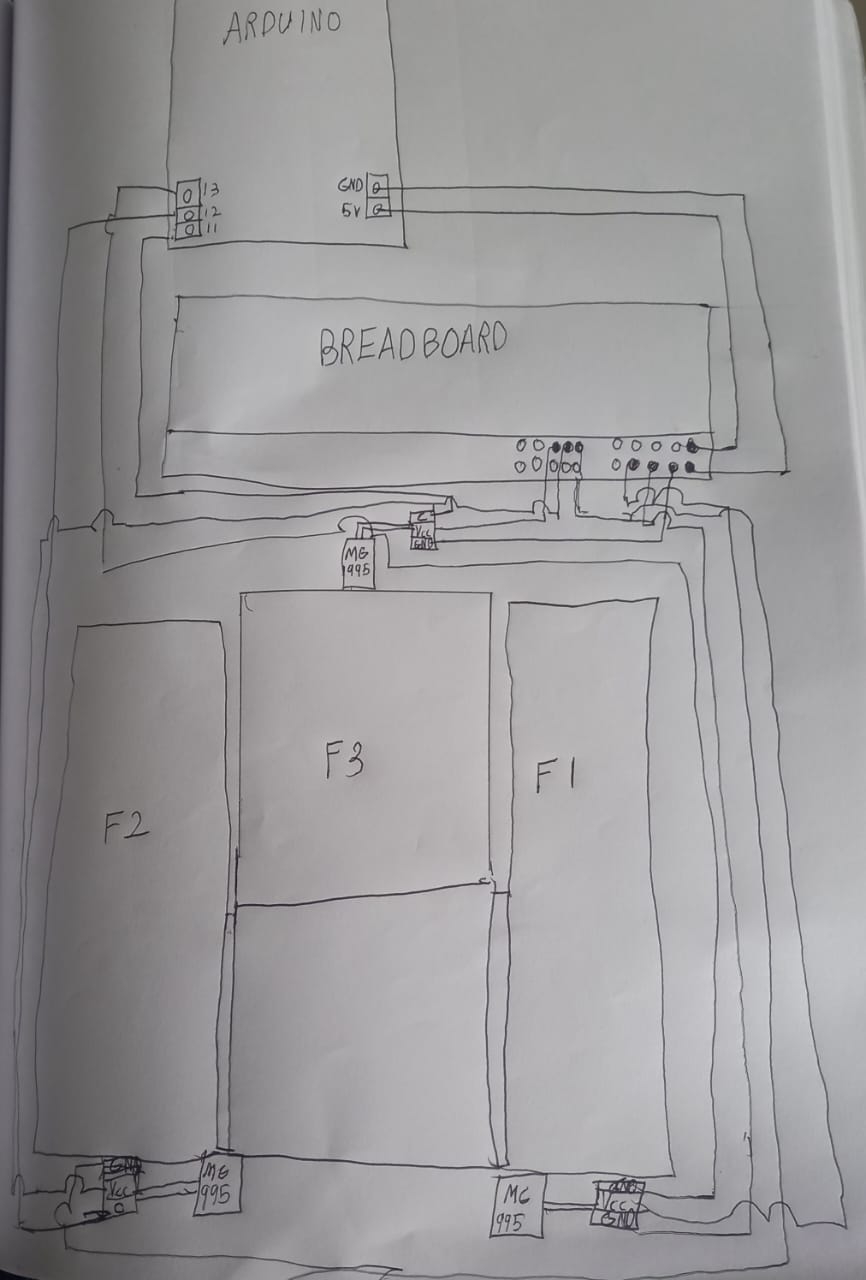 ARDUINO
13
GND
12
5V
11
BREADBOARD
C
VCC
GND
MG
995
F3
F1
F2
GND
VCC
MG
995
MG
995
VCC
GND